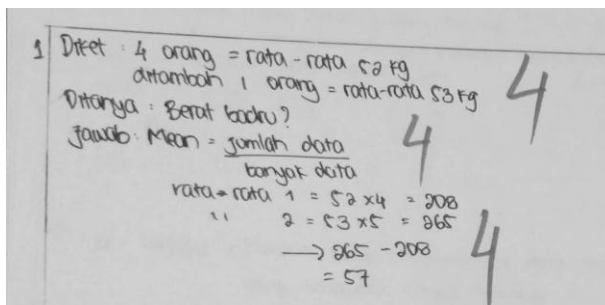 1 Diket : 4 orang = rata - rata 52 kg 4
ditambah 1 orang = rata-rata 53 kg
Ditanya : Berat badru?
Jawab : Mean = jumlah data 4
banyak data
rata-rata 1 = 52 x 4 = 208
" 2 = 53 x 5 = 265
→ 265 - 208 4
= 57